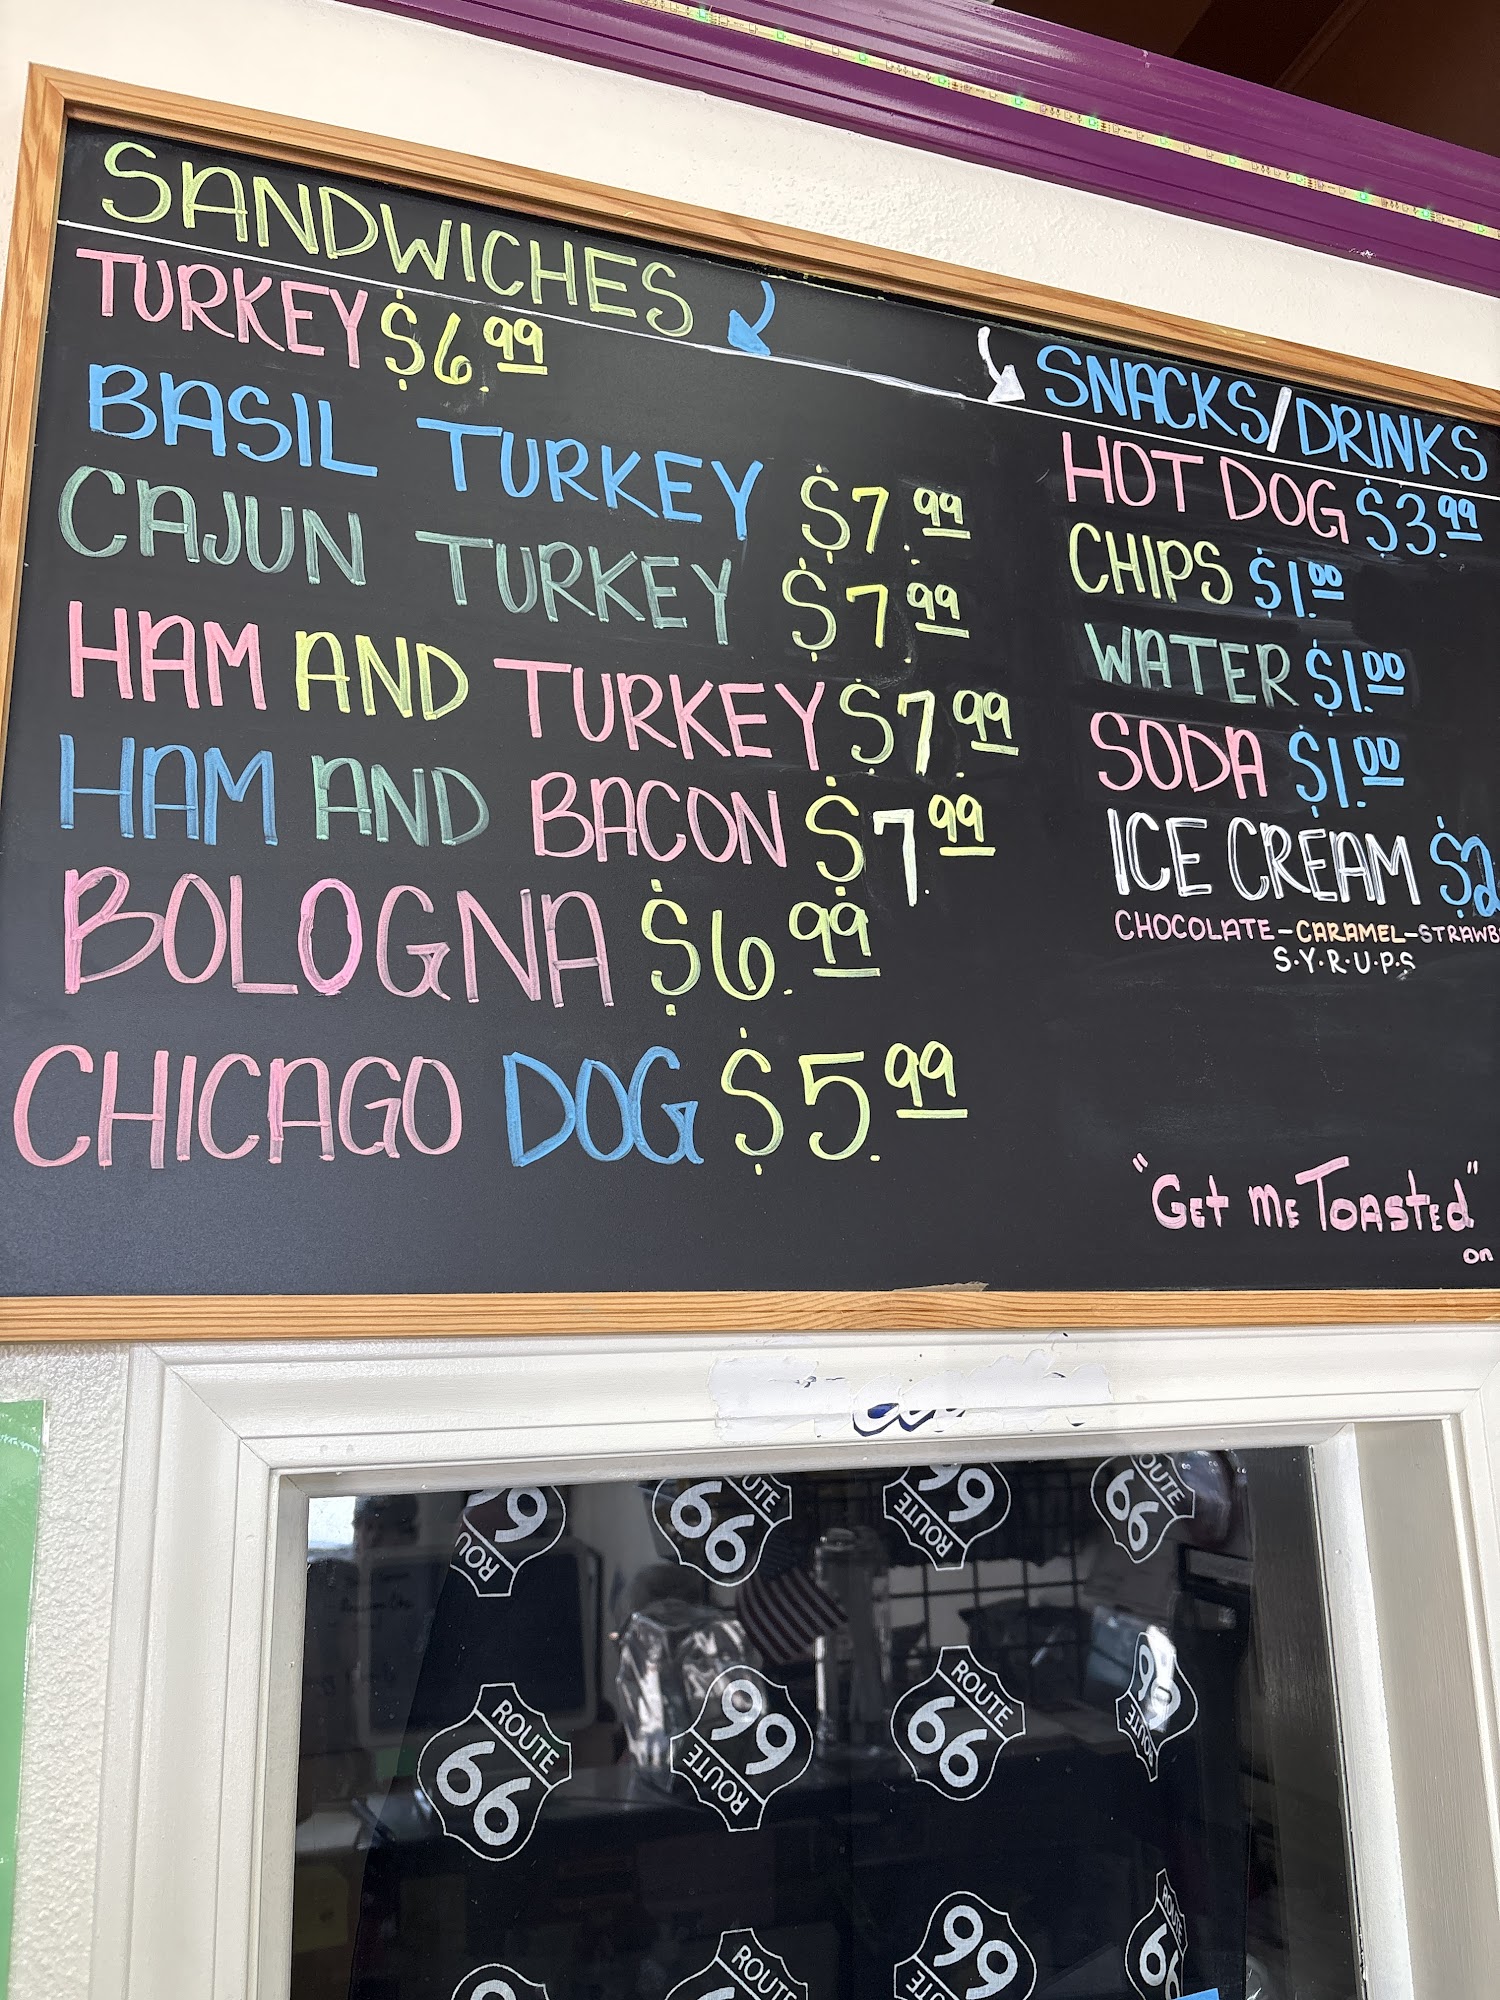 SANDWICHES
TURKEY $6.99
BASIL TURKEY $7.99
CAJUN TURKEY $7.99
HAM AND TURKEY $7.99
HAM AND BACON $7.99
BOLOGNA $6.99
CHICAGO DOG $5.99
SNACKS/DRINKS
HOT DOG $3.99
CHIPS $1.00
WATER $1.00
SODA $1.00
ICE CREAM $2
CHOCOLATE-CARAMEL-STRAWB
S.Y.R.U.P.S
"GET ME TOASTED"
on
ROUTE 66
ROUTE 66
ROUTE 66
ROUTE 66
ROUTE 66
ROUTE 66
ROUTE 66
ROUTE 66
ROUTE
ROUTE 66
ROUTE 66